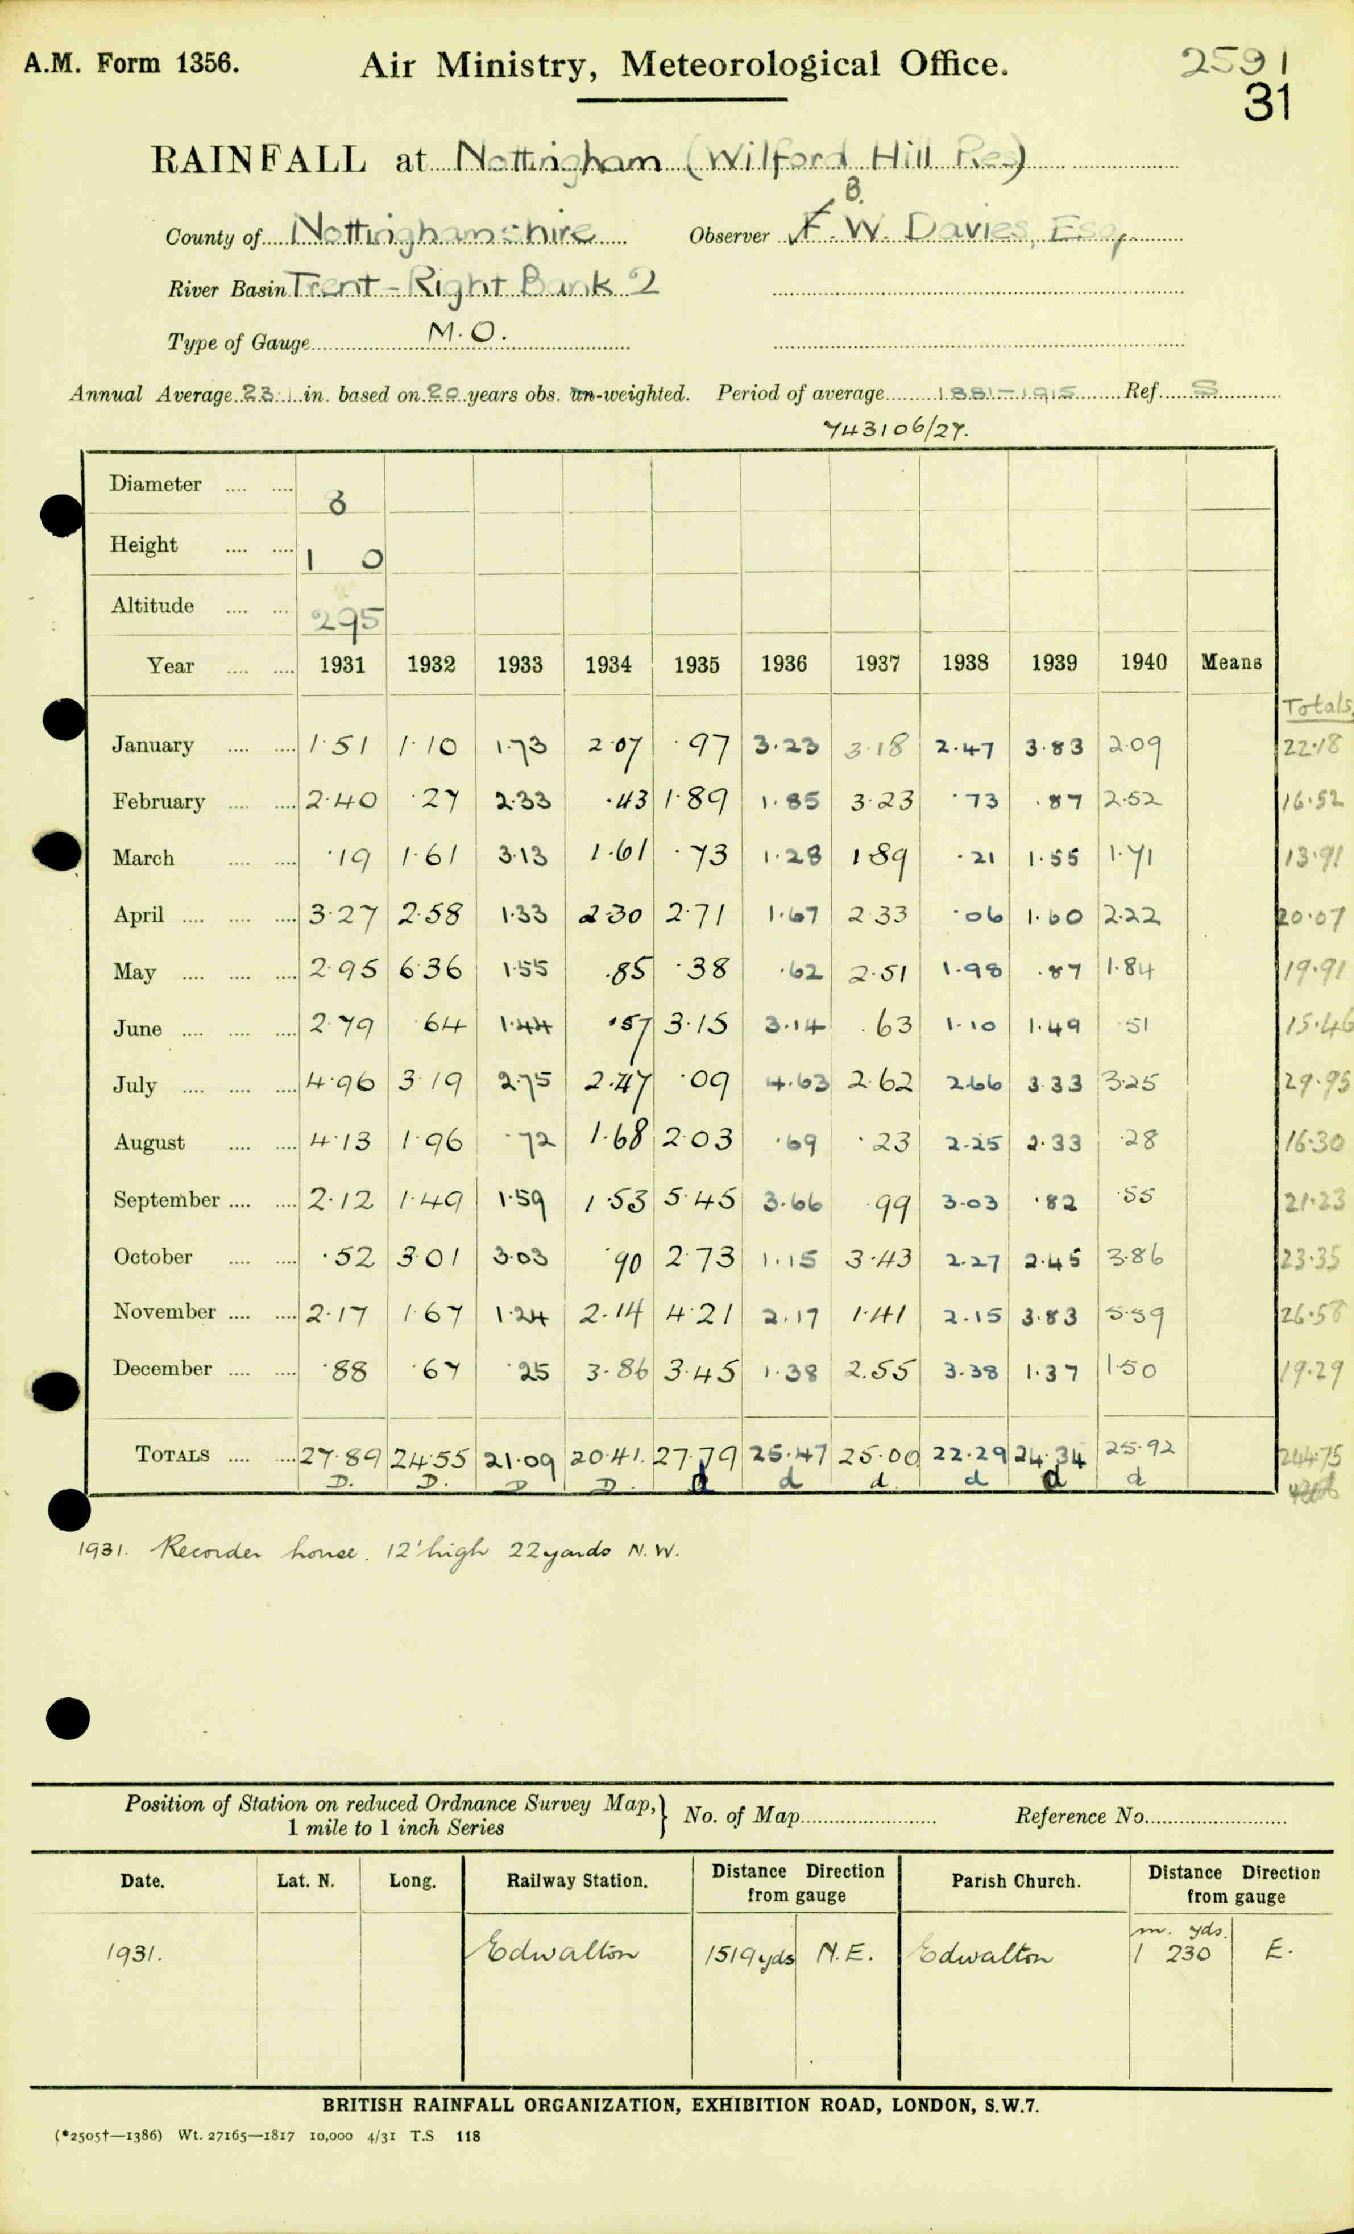 A.M. Form 1356. Air Ministry, Meteorological Office. 2591
31
RAINFALL at Nottingham (Wilford Hill Res)
B.
County of Nottinghamshire Observer F. W. Davies, Esq.
River Basin Trent - Right Bank 2
Type of Gauge M.O.
Annual Average 23.1 in. based on 20 years obs. un-weighted. Period of average 1881-1915 Ref. S
743106/27.
Diameter .... .... 8
Height .... .... 1 0
Altitude .... .... 295
Year .... .... 1931 1932 1933 1934 1935 1936 1937 1938 1939 1940 Means
Totals
January .... .... 1.51 1.10 1.73 2.07 .97 3.23 3.18 2.47 3.83 2.09 22.18
February .... .... 2.40 .27 2.33 .43 1.89 1.85 3.23 .73 .87 2.52 16.52
March .... .... .19 1.61 3.13 1.61 .73 1.28 1.89 .21 1.55 1.71 13.91
April .... .... .... 3.27 2.58 1.33 2.30 2.71 1.67 2.33 .06 1.60 2.22 20.07
May .... .... .... 2.95 6.36 1.55 .85 .38 .62 2.51 1.98 .87 1.84 19.91
June .... .... .... 2.79 .64 1.44 .57 3.15 3.14 .63 1.10 1.49 .51 15.46
July .... .... .... 4.96 3.19 2.75 2.47 .09 4.63 2.62 2.66 3.33 3.25 29.95
August .... .... 4.13 1.96 .72 1.68 2.03 .69 .23 2.25 2.33 .28 16.30
September .... .... 2.12 1.49 1.59 1.53 5.45 3.66 .99 3.03 .82 .55 21.23
October .... .... .52 3.01 3.03 .90 2.73 1.15 3.43 2.27 2.45 3.86 23.35
November .... .... 2.17 1.67 1.24 2.14 4.21 2.17 1.41 2.15 3.83 5.59 26.58
December .... .... .88 .67 .25 3.86 3.45 1.38 2.55 3.38 1.37 1.50 19.29
TOTALS .... .... 27.89 24.55 21.09 20.41. 27.79 25.47 25.00 22.29 24.34 25.92 244.75
D. D. D D. d d d. d d d
1931. Recorder house. 12' high 22 yards N.W.
Position of Station on reduced Ordnance Survey Map, 1 mile to 1 inch Series } No. of Map Reference No.
Date. Lat. N. Long. Railway Station. Distance Direction from gauge Parish Church. Distance Direction from gauge
m. yds.
1931. Edwalton 1519 yds N.E. Edwalton 1 230 E.
BRITISH RAINFALL ORGANIZATION, EXHIBITION ROAD, LONDON, S.W.7.
(*2505†—1386) Wt. 27165—1817 10,000 4/31 T.S 118